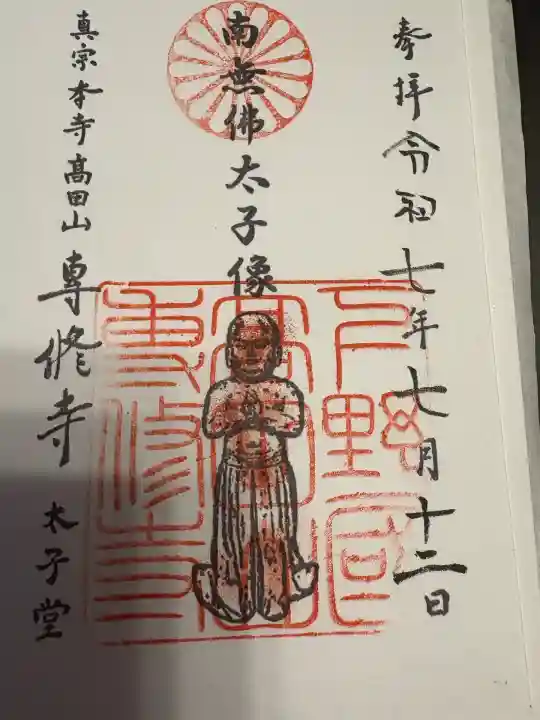 奉拝令和七年七月十二日
南無佛太子像
真宗本寺高田山専修寺太子堂
下野国
専修寺